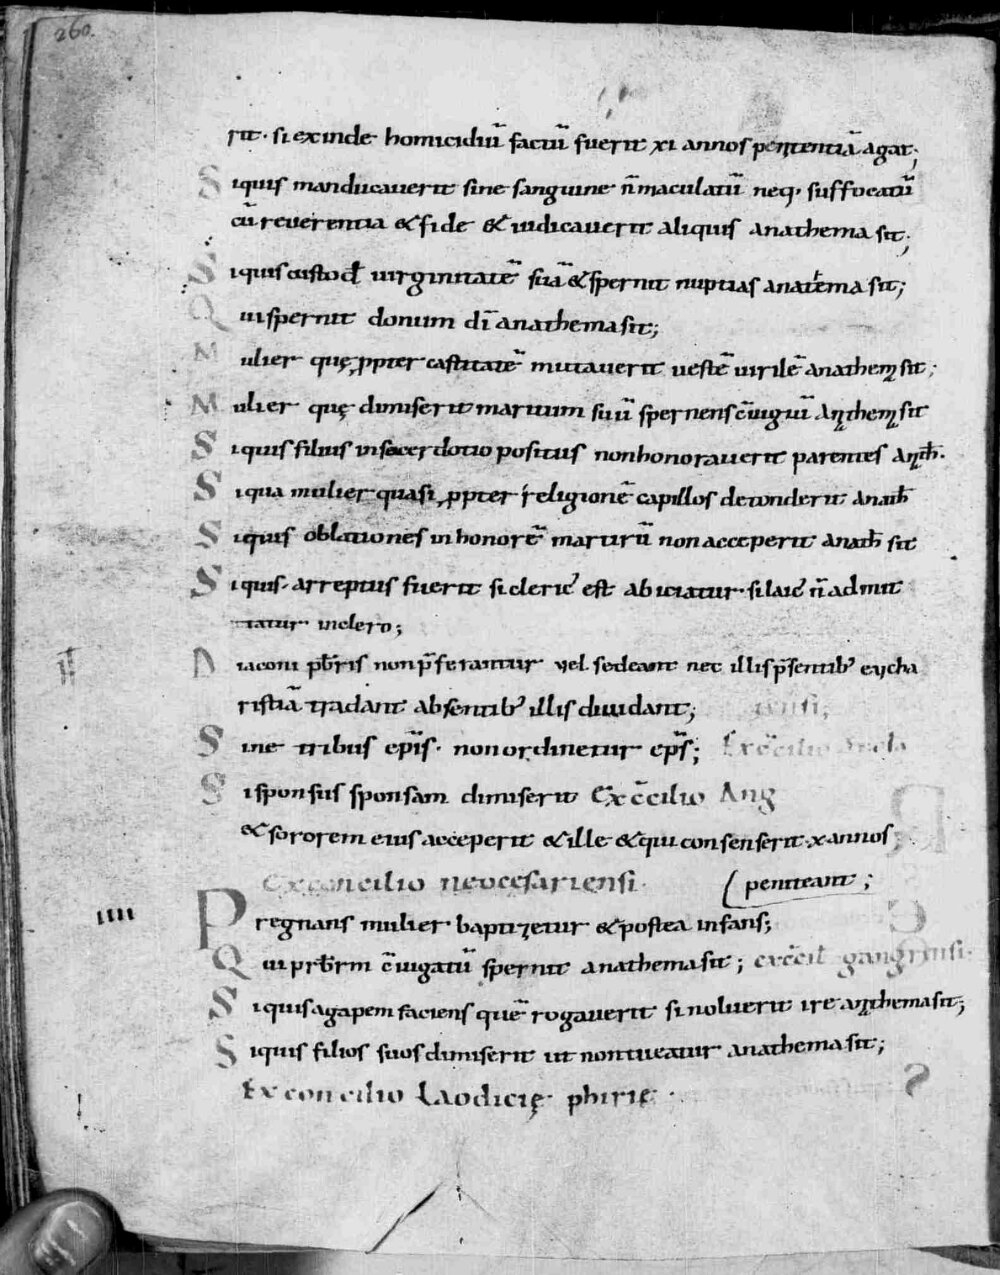 260.
rit· si exinde homicidiū factū fuerit xi annos penitentiā agat;
Siquis manducauerit sine sanguine ñ maculatū neq· suffocatū
cū reuerentia & fide & iudicauerit aliquis anathema sit;
Siquis custod̄ uirginitatē suā & spernit nuptias anathema sit;
Qui spernit donum dī anathema sit;
Mulier quę ꝓpter castitatē mutauerit uestē uirilē anathem sit;
Mulier quę dimiserit maritum suū spernens c̄iugiū anathem sit
Siquis filius in sacerdotio positus non honorauerit parentes anath̄·
Siqua mulier quasi ꝓpter religionē capillos detonderit anath̄
Siquis oblationes in honorē martirū non acceperit anath̄ sit
Siquis· arreptus fuerit si cleric̄ est abiciatur· si laic̄ ñ admit
tatur in clero;
Diaconi p̄b̄ris non p̄ferantur uel sedeant nec illis p̄sentib; eucha
ristiā tradant absentib; illis diuidant;
Sine tribus ep̄is· non ordinetur ep̄s; Ex c̄cilio
Si sponsus sponsam dimiserit Ex c̄cilio Ang
& sororem eius acceperit & ille & qui consenserit· x annos
peniteant;
Ex concilio neocesariensi·
IIII
Pregnans mulier baptizetur & postea infans;
Qui pr̄b̄rm c̄iugatū spernit anathema sit; ex c̄cil̄ gangrensi·
Siquis agapem faciens quē rogauerit si noluerit ire anathema sit;
Siquis filios suos dimiserit ut non tueatur anathema sit;
Ex concilio Laodicię phirię·